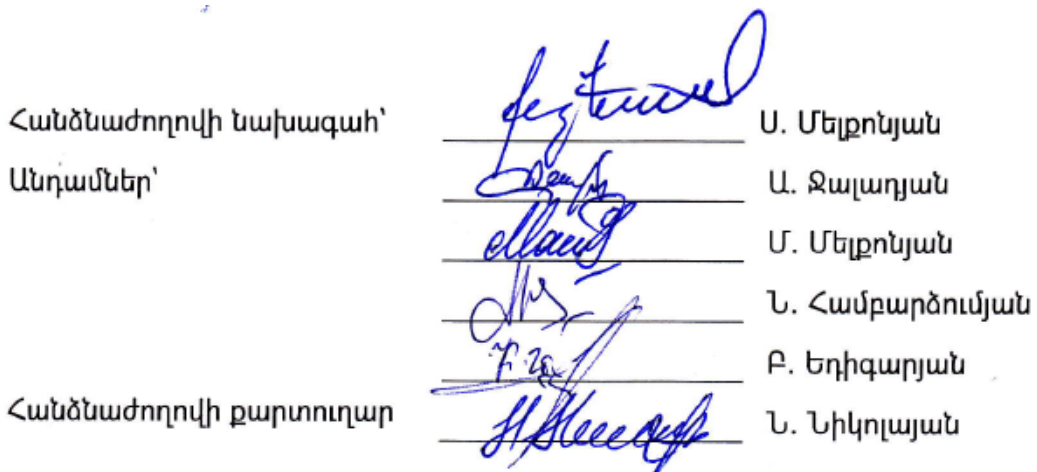 Հանձնաժողովի նախագահ՝ Ս. Մելքոնյան
Անդամներ՝ Ա. Ջալադյան
Մ. Մելքոնյան
Ն. Համբարձումյան
Բ. Եդիգարյան
Հանձնաժողովի քարտուղար Ն. Նիկոլայան